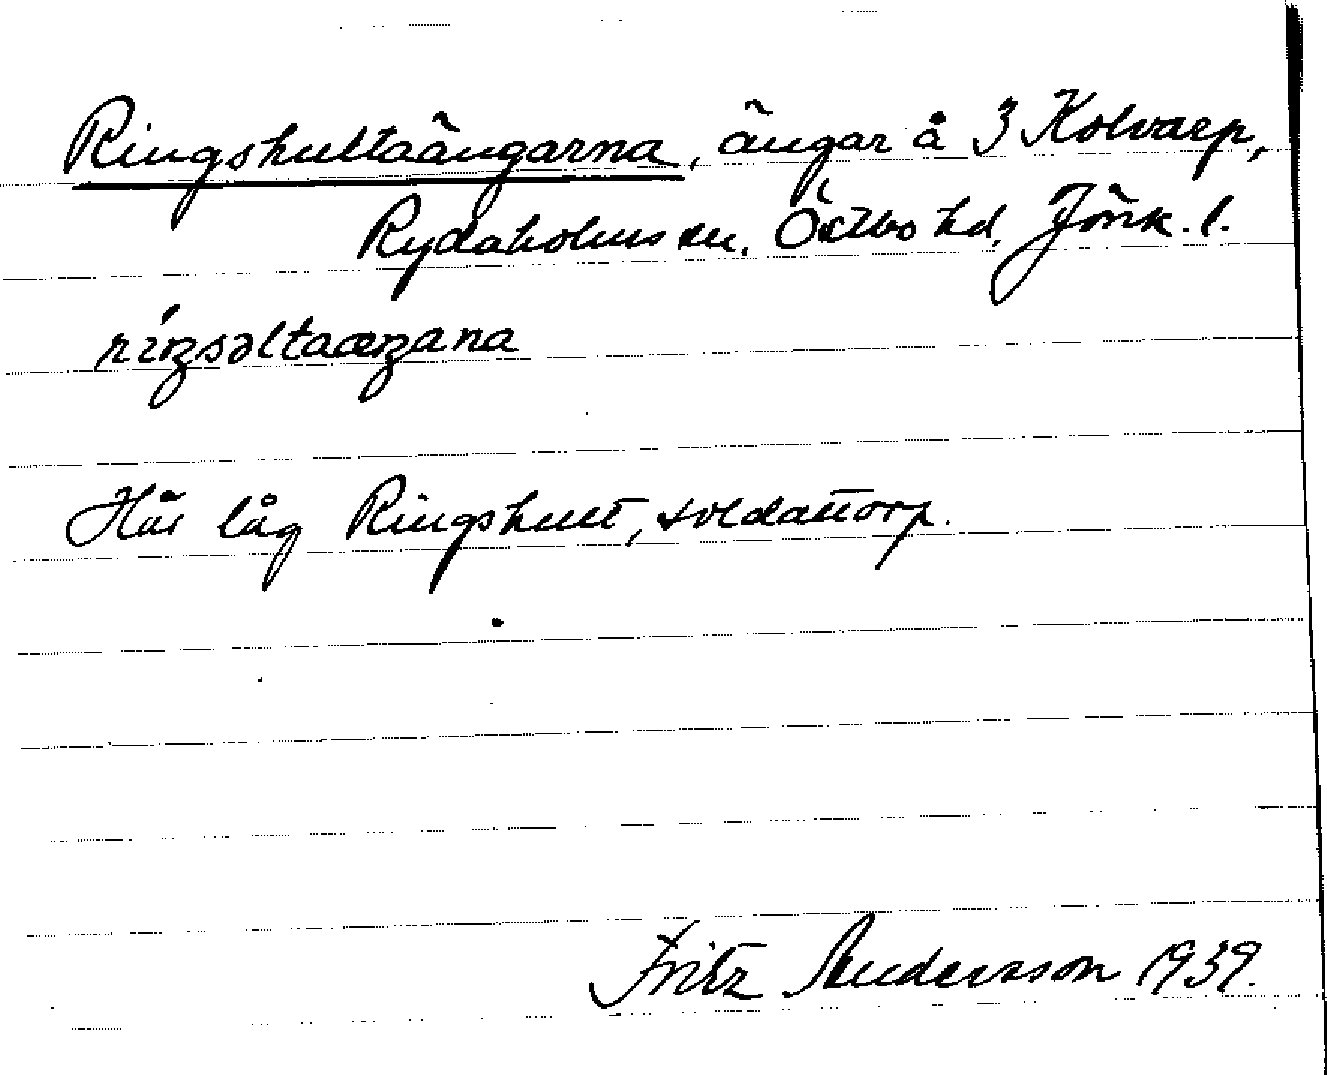 Ringshultaängarna, ängar å 3 Kolvarp,
Rydaholms sn. Östbo hd, Jönk. l.
ríŋsəltaæŋana
Här låg Ringshult, soldattorp.
Fritz Andersson 1939.